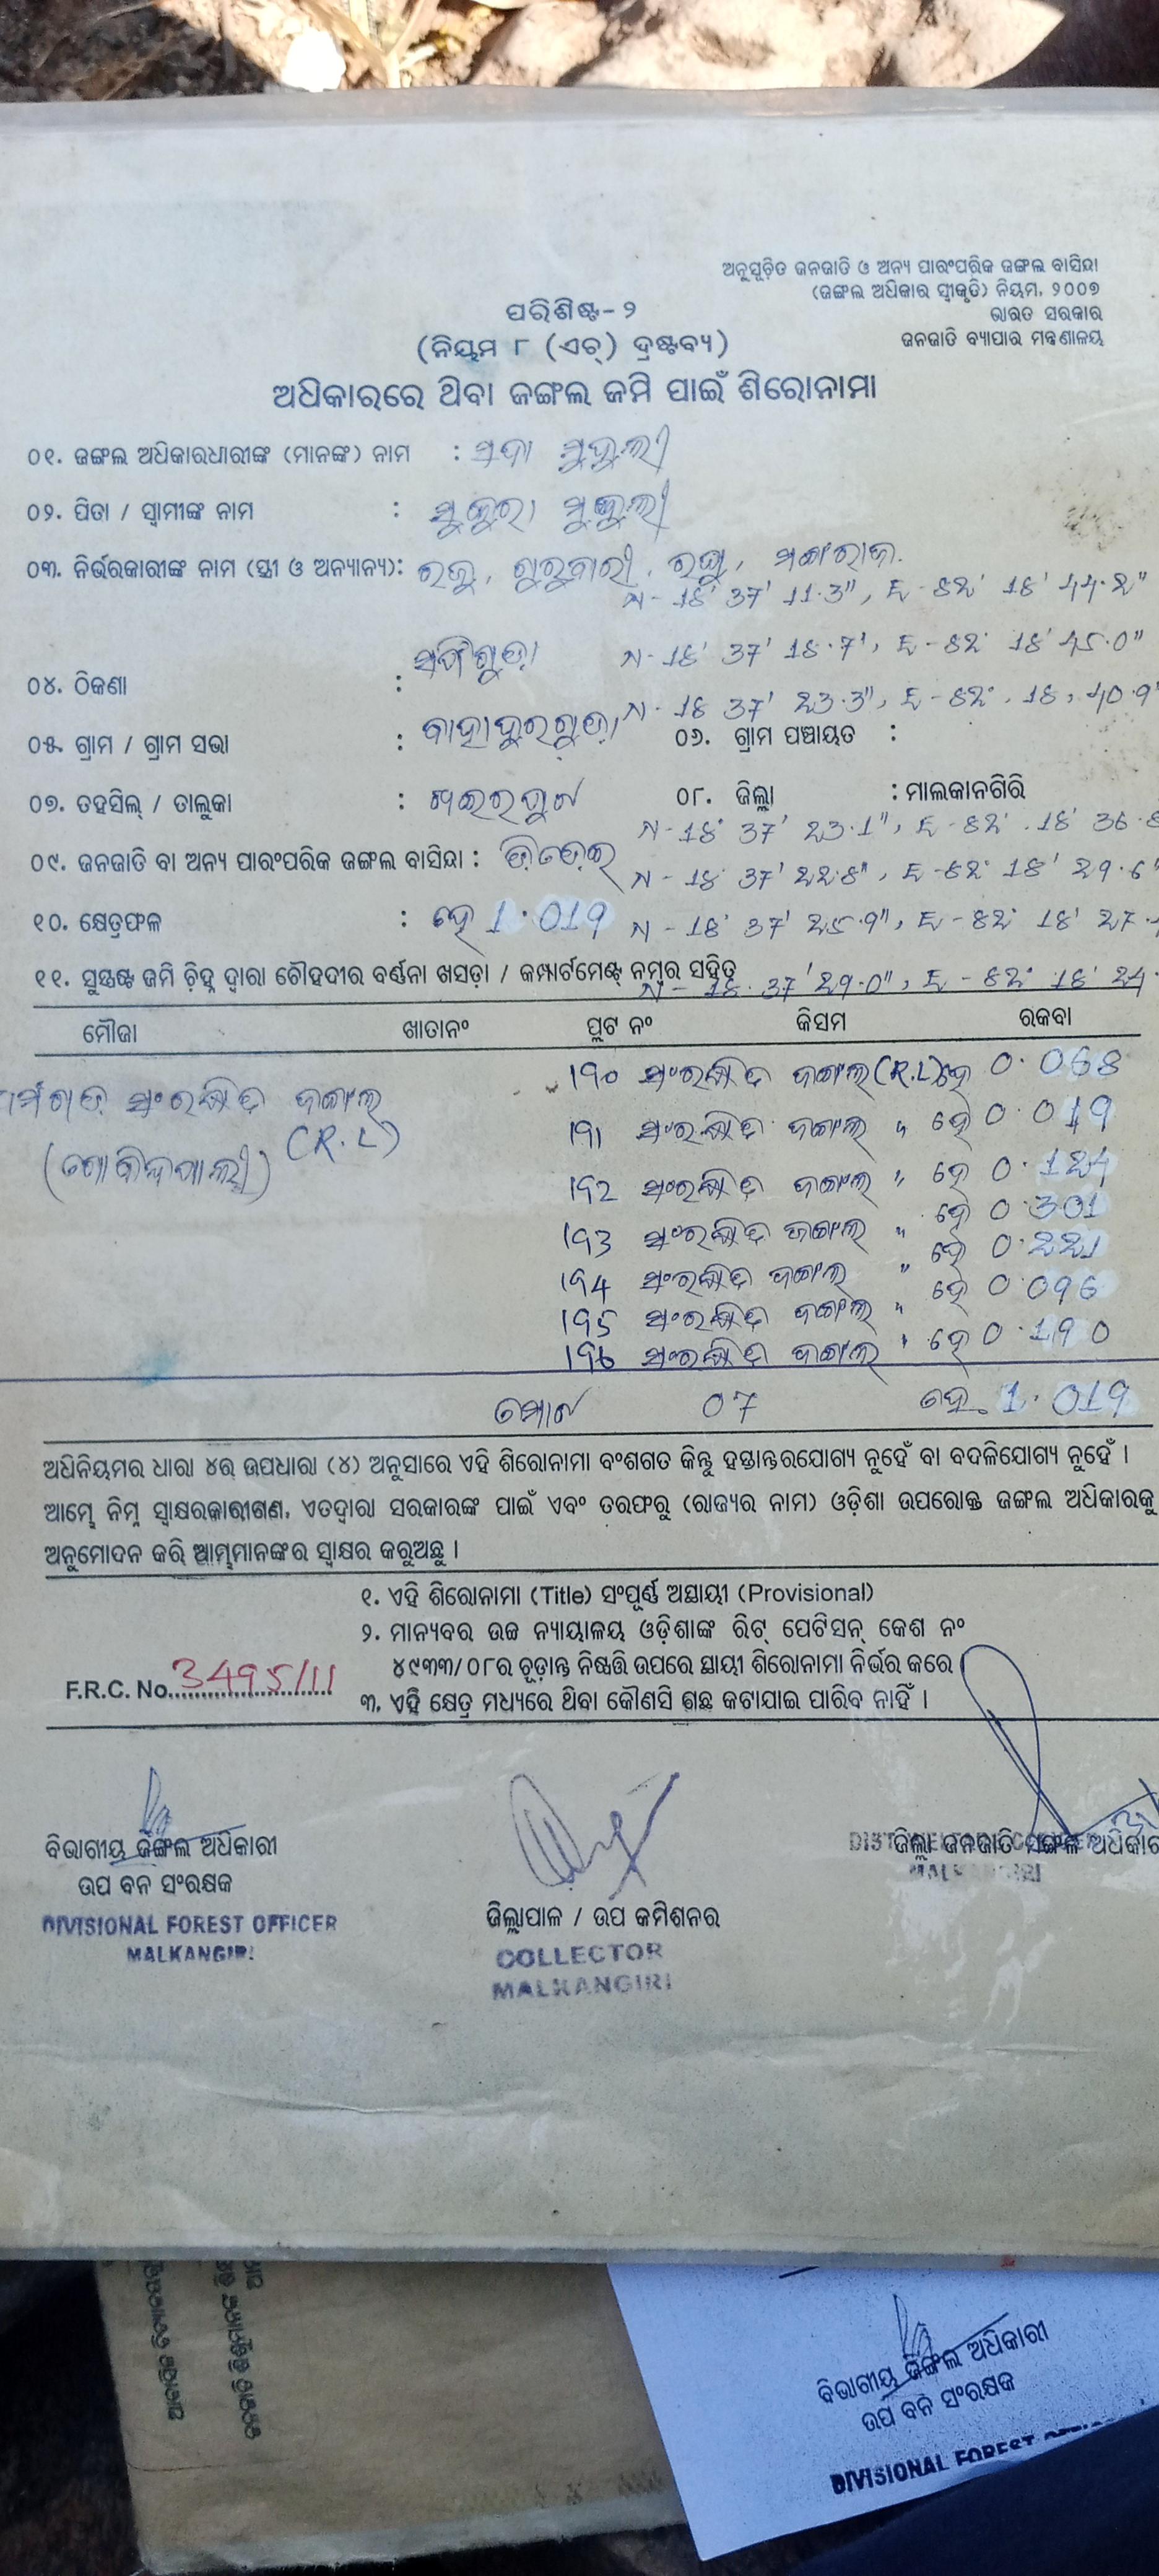 ଅନୁସୂଚିତ ଜନଜାତି ଓ ଅନ୍ୟ ପାରଂପରିକ ଜଙ୍ଗଲ ବାସିନ୍ଦା
(ଜଙ୍ଗଲ ଅଧିକାର ସ୍ୱୀକୃତି) ନିୟମ, ୨୦୦୭
ଭାରତ ସରକାର
ଜନଜାତି ବ୍ୟାପାର ମନ୍ତ୍ରଣାଳୟ
ପରିଶିଷ୍ଟ-୨
(ନିୟମ ୮ (ଏଚ୍) ଦ୍ରଷ୍ଟବ୍ୟ)
ଅଧିକାରରେ ଥିବା ଜଙ୍ଗଲ ଜମି ପାଇଁ ଶିରୋନାମା
୦୧. ଜଙ୍ଗଲ ଅଧିକାରଧାରୀଙ୍କ (ମାନଙ୍କ) ନାମ :
୦୨. ପିତା / ସ୍ୱାମୀଙ୍କ ନାମ :
୦୩. ନିର୍ଭରକାରୀଙ୍କ ନାମ (ସ୍ତ୍ରୀ ଓ ଅନ୍ୟାନ୍ୟ):
N-18° 37' 11.3", E-82° 18' 44.2"
N-18° 37' 18.7", E-82° 18' 45.0"
୦୪. ଠିକଣା :
N-18 37' 23.3", E-82°. 18, 40.9"
୦୫. ଗ୍ରାମ / ଗ୍ରାମ ସଭା : ୦୬. ଗ୍ରାମ ପଞ୍ଚାୟତ :
୦୭. ତହସିଲ୍ / ତାଲୁକା : ଖଇରପୁଟ ୦୮. ଜିଲ୍ଲା : ମାଲକାନଗିରି
N-18° 37' 23.1", E-82° .18' 36.8
୦୯. ଜନଜାତି ବା ଅନ୍ୟ ପାରଂପରିକ ଜଙ୍ଗଲ ବାସିନ୍ଦା :
N-18° 37' 22.8", E-82° 18' 29.6"
୧୦. କ୍ଷେତ୍ରଫଳ : ହେ 1.019 N-18° 37' 25.9", E-82° 18' 27.
୧୧. ସୁସ୍ପଷ୍ଟ ଜମି ଚିହ୍ନ ଦ୍ୱାରା ଚୌହଦୀର ବର୍ଣ୍ଣନା ଖସଡ଼ା / କମ୍ପାର୍ଟମେଣ୍ଟ୍ ନମ୍ବର ସହିତ
N-18° 37' 29.0", E-82° 18' 24.
ମୌଜା ଖାତାନଂ ପ୍ଲଟ ନଂ କିସମ ରକବା
ସଂରକ୍ଷିତ ଜଙ୍ଗଲ (R.L) 190 ସଂରକ୍ଷିତ ଜଙ୍ଗଲ (R.L) ହେ 0.068
(ଗୋବିନ୍ଦପାଲ୍ଲୀ) 191 ସଂରକ୍ଷିତ ଜଙ୍ଗଲ " ହେ 0.019
192 ସଂରକ୍ଷିତ ଜଙ୍ଗଲ " ହେ 0.124
193 ସଂରକ୍ଷିତ ଜଙ୍ଗଲ " ହେ 0.301
194 ସଂରକ୍ଷିତ ଜଙ୍ଗଲ " ହେ 0.221
195 ସଂରକ୍ଷିତ ଜଙ୍ଗଲ " ହେ 0.096
196 ସଂରକ୍ଷିତ ଜଙ୍ଗଲ " ହେ 0.190
ମୋଟ 07 ହେ. 1.019
ଅଧିନିୟମର ଧାରା ୪ର ଉପଧାରା (୪) ଅନୁସାରେ ଏହି ଶିରୋନାମା ବଂଶଗତ କିନ୍ତୁ ହସ୍ତାନ୍ତରଯୋଗ୍ୟ ନୁହେଁ ବା ବଦଳିଯୋଗ୍ୟ ନୁହେଁ ।
ଆମ୍ଭେ ନିମ୍ନ ସ୍ୱାକ୍ଷରକାରୀଗଣ, ଏତଦ୍ୱାରା ସରକାରଙ୍କ ପାଇଁ ଏବଂ ତରଫରୁ (ରାଜ୍ୟର ନାମ) ଓଡ଼ିଶା ଉପରୋକ୍ତ ଜଙ୍ଗଲ ଅଧିକାରକୁ
ଅନୁମୋଦନ କରି ଆମ୍ଭମାନଙ୍କର ସ୍ୱାକ୍ଷର କରୁଅଛୁ ।
୧. ଏହି ଶିରୋନାମା (Title) ସଂପୂର୍ଣ୍ଣ ଅସ୍ଥାୟୀ (Provisional)
୨. ମାନ୍ୟବର ଉଚ୍ଚ ନ୍ୟାୟାଳୟ ଓଡ଼ିଶାଙ୍କ ରିଟ୍ ପେଟିସନ୍ କେଶ ନଂ
୪୯୩୩/୦୮ର ଚୂଡ଼ାନ୍ତ ନିଷ୍ପତ୍ତି ଉପରେ ସ୍ଥାୟୀ ଶିରୋନାମା ନିର୍ଭର କରେ ।
F.R.C. No. 3495/11
୩. ଏହି କ୍ଷେତ୍ର ମଧ୍ୟରେ ଥିବା କୌଣସି ଗଛ କଟାଯାଇ ପାରିବ ନାହିଁ ।
ବିଭାଗୀୟ ଜଙ୍ଗଲ ଅଧିକାରୀ
ଉପ ବନ ସଂରକ୍ଷକ
DIVISIONAL FOREST OFFICER
MALKANGIRI
ଜିଲ୍ଲାପାଳ / ଉପ କମିଶନର
COLLECTOR
MALKANGIRI
ଜିଲ୍ଲା ଜନଜାତି ମଙ୍ଗଳ
MALKANGIRI
ବିଭାଗୀୟ ଜଙ୍ଗଲ ଅଧିକାରୀ
ଉପ ବନ ସଂରକ୍ଷକ
DIVISIONAL FOREST